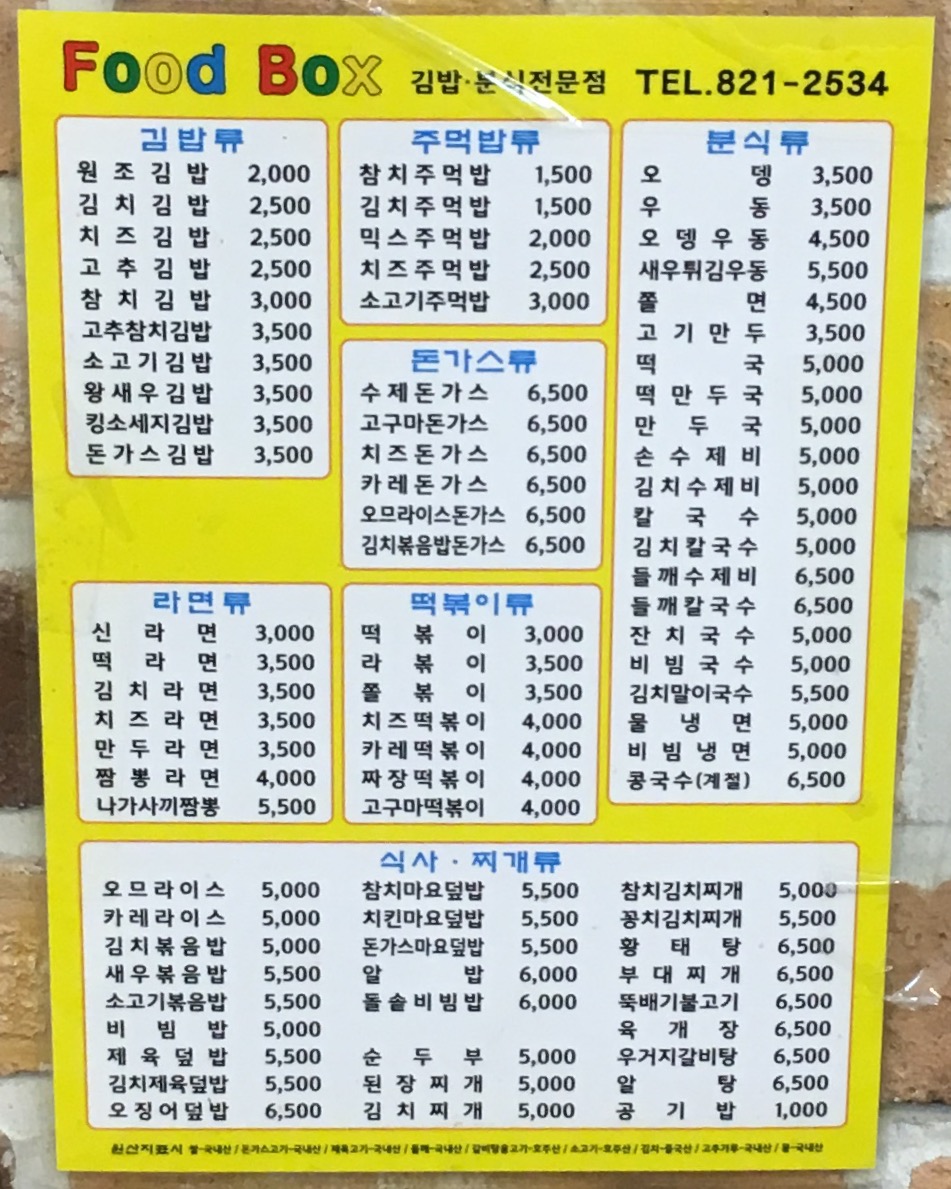 Food Box 김밥·분식전문점 TEL.821-2534
김밥류
원조김밥 2,000
김치김밥 2,500
치즈김밥 2,500
고추김밥 2,500
참치김밥 3,000
고추참치김밥 3,500
소고기김밥 3,500
왕새우김밥 3,500
킹소세지김밥 3,500
돈가스김밥 3,500
주먹밥류
참치주먹밥 1,500
김치주먹밥 1,500
믹스주먹밥 2,000
치즈주먹밥 2,500
소고기주먹밥 3,000
돈가스류
수제돈가스 6,500
고구마돈가스 6,500
치즈돈가스 6,500
카레돈가스 6,500
오므라이스돈가스 6,500
김치볶음밥돈가스 6,500
분식류
오뎅 3,500
우동 3,500
오뎅우동 4,500
새우튀김우동 5,500
쫄면 4,500
고기만두 3,500
떡국 5,000
떡만두국 5,000
만두국 5,000
손수제비 5,000
김치수제비 5,000
칼국수 5,000
김치칼국수 5,000
들깨수제비 6,500
들깨칼국수 6,500
잔치국수 5,000
비빔국수 5,000
김치말이국수 5,500
물냉면 5,000
비빔냉면 5,000
콩국수(계절) 6,500
라면류
신라면 3,000
떡라면 3,500
김치라면 3,500
치즈라면 3,500
만두라면 3,500
짬뽕라면 4,000
나가사끼짬뽕 5,500
떡볶이류
떡볶이 3,000
라볶이 3,500
쫄볶이 3,500
치즈떡볶이 4,000
카레떡볶이 4,000
짜장떡볶이 4,000
고구마떡볶이 4,000
식사·찌개류
오므라이스 5,000
카레라이스 5,000
김치볶음밥 5,000
새우볶음밥 5,500
소고기볶음밥 5,500
비빔밥 5,000
제육덮밥 5,500
김치제육덮밥 5,500
오징어덮밥 6,500
참치마요덮밥 5,500
치킨마요덮밥 5,500
돈가스마요덮밥 5,500
알밥 6,000
돌솥비빔밥 6,000
순두부 5,000
된장찌개 5,000
김치찌개 5,000
참치김치찌개 5,000
꽁치김치찌개 5,500
황태탕 6,500
부대찌개 6,500
뚝배기불고기 6,500
육개장 6,500
우거지갈비탕 6,500
알탕 6,500
공기밥 1,000
원산지표시 쌀-국내산 / 돈가스고기-국내산 / 제육고기-국내산 / 들깨-국내산 / 갈비탕용고기-호주산 / 소고기-호주산 / 김치-중국산 / 고추가루-국내산 / 콩-국내산